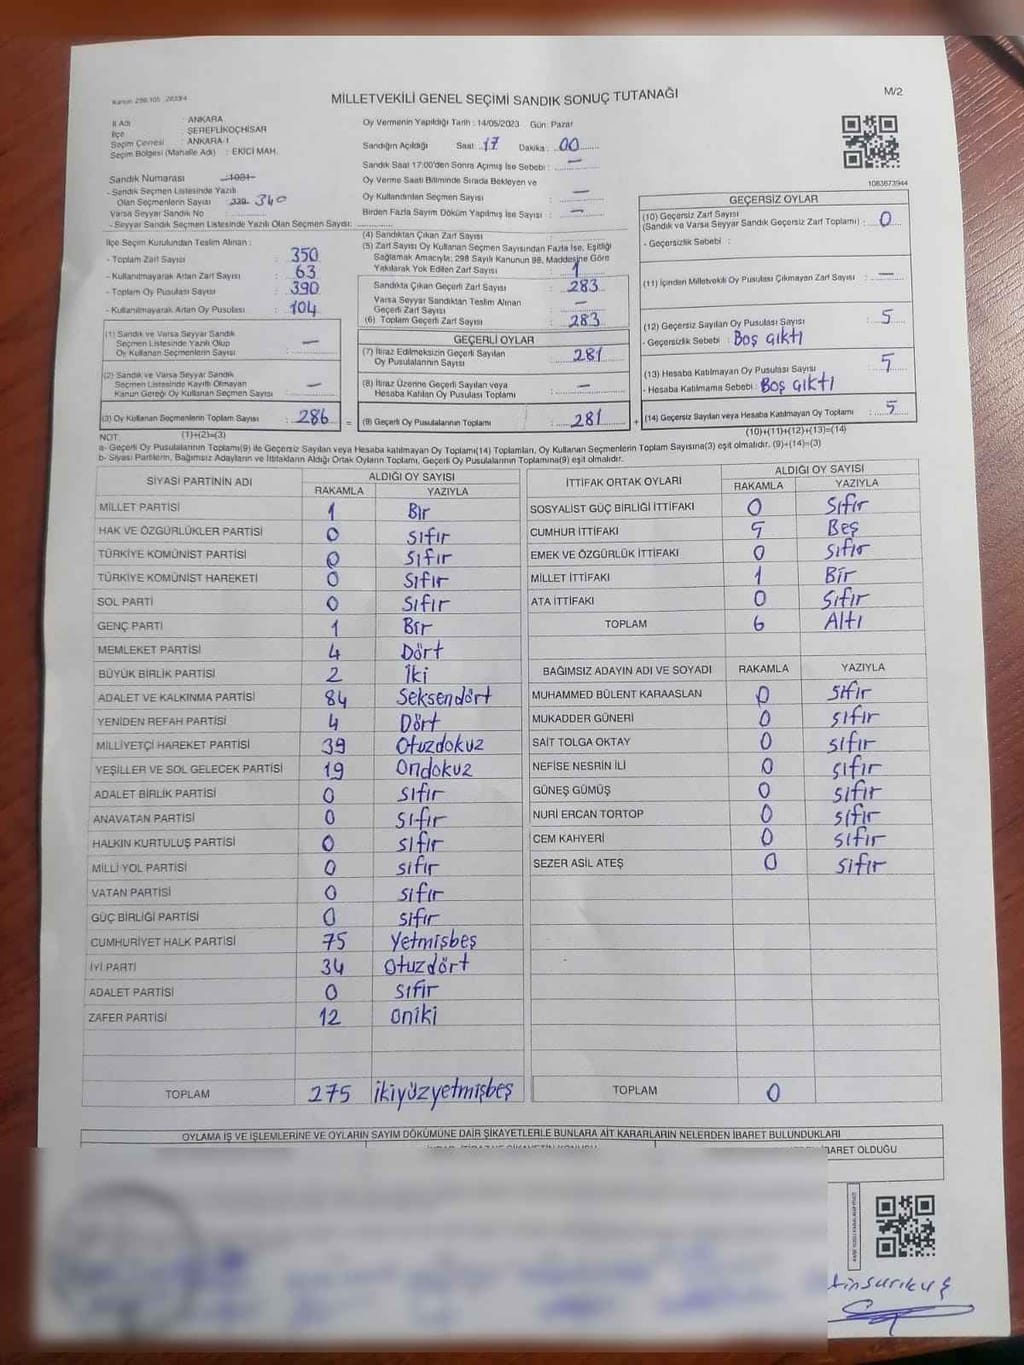 Kanun: 298/105 2839/4
MİLLETVEKİLİ GENEL SEÇİMİ SANDIK SONUÇ TUTANAĞI
M/2
İl Adı : ANKARA
İlçe : ŞEREFLİKOÇHİSAR
Seçim Çevresi : ANKARA 1
Seçim Bölgesi (Mahalle Adı) : EKİCİ MAH.
Sandık Numarası 1081
- Sandık Seçmen Listesinde Yazılı
Olan Seçmenlerin Sayısı 339 340
Varsa Seyyar Sandık No
- Seyyar Sandık Seçmen Listesinde Yazılı Olan Seçmen Sayısı:
İlçe Seçim Kurulundan Teslim Alınan :
- Toplam Zarf Sayısı : 350
- Kullanılmayarak Artan Zarf Sayısı : 63
- Toplam Oy Pusulası Sayısı : 390
- Kullanılmayarak Artan Oy Pusulası : 104
(1) Sandık ve Varsa Seyyar Sandık
Seçmen Listesinde Yazılı Olup
Oy Kullanan Seçmenlerin Sayısı : —
(2) Sandık ve Varsa Seyyar Sandık
Seçmen Listesinde Kayıtlı Olmayan
Kanun Gereği Oy Kullanan Seçmen Sayısı : —
(3) Oy Kullanan Seçmenlerin Toplam Sayısı : 286
Oy Vermenin Yapıldığı Tarih : 14/05/2023 Gün: Pazar
Sandığın Açıldığı Saat : 17 Dakika : 00
Sandık Saat 17:00'den Sonra Açılmış İse Sebebi : —
Oy Verme Saati Bitiminde Sırada Bekleyen ve
Oy Kullandırılan Seçmen Sayısı : —
Birden Fazla Sayım Döküm Yapılmış İse Sayısı : —
(4) Sandıktan Çıkan Zarf Sayısı
(5) Zarf Sayısı Oy Kullanan Seçmen Sayısından Fazla İse, Eşitliği
Sağlamak Amacıyla; 298 Sayılı Kanunun 98. Maddesine Göre
Yakılarak Yok Edilen Zarf Sayısı : 1
Sandıkta Çıkan Geçerli Zarf Sayısı : 283
Varsa Seyyar Sandıktan Teslim Alınan
Geçerli Zarf Sayısı : —
(6) Toplam Geçerli Zarf Sayısı : 283
GEÇERLİ OYLAR
(7) İtiraz Edilmeksizin Geçerli Sayılan
Oy Pusulalarının Sayısı : 281
(8) İtiraz Üzerine Geçerli Sayılan veya
Hesaba Katılan Oy Pusulası Toplamı : —
= (9) Geçerli Oy Pusulalarının Toplamı : 281 +
1083673944
GEÇERSİZ OYLAR
(10) Geçersiz Zarf Sayısı
(Sandık ve Varsa Seyyar Sandık Geçersiz Zarf Toplamı) : 0
- Geçersizlik Sebebi :
(11) İçinden Milletvekili Oy Pusulası Çıkmayan Zarf Sayısı : —
(12) Geçersiz Sayılan Oy Pusulası Sayısı : 5
- Geçersizlik Sebebi : Boş çıktı
(13) Hesaba Katılmayan Oy Pusulası Sayısı : 5
- Hesaba Katılmama Sebebi : Boş çıktı
(14) Geçersiz Sayılan veya Hesaba Katılmayan Oy Toplamı : 5
NOT: (1)+(2)=(3)
(10)+(11)+(12)+(13)=(14)
a- Geçerli Oy Pusulalarının Toplamı(9) ile Geçersiz Sayılan veya Hesaba katılmayan Oy Toplamı(14) Toplamları, Oy Kullanan Seçmenlerin Toplam Sayısına(3) eşit olmalıdır. (9)+(14)=(3)
b- Siyasi Partilerin, Bağımsız Adayların ve İttifakların Aldığı Ortak Oyların Toplamı, Geçerli Oy Pusulalarının Toplamına(9) eşit olmalıdır.
SİYASİ PARTİNİN ADI ALDIĞI OY SAYISI
RAKAMLA YAZIYLA
MİLLET PARTİSİ 1 Bir
HAK VE ÖZGÜRLÜKLER PARTİSİ 0 Sıfır
TÜRKİYE KOMÜNİST PARTİSİ 0 Sıfır
TÜRKİYE KOMÜNİST HAREKETİ 0 Sıfır
SOL PARTİ 0 Sıfır
GENÇ PARTİ 1 Bir
MEMLEKET PARTİSİ 4 Dört
BÜYÜK BİRLİK PARTİSİ 2 İki
ADALET VE KALKINMA PARTİSİ 84 Seksendört
YENİDEN REFAH PARTİSİ 4 Dört
MİLLİYETÇİ HAREKET PARTİSİ 39 Otuzdokuz
YEŞİLLER VE SOL GELECEK PARTİSİ 19 Ondokuz
ADALET BİRLİK PARTİSİ 0 Sıfır
ANAVATAN PARTİSİ 0 Sıfır
HALKIN KURTULUŞ PARTİSİ 0 Sıfır
MİLLİ YOL PARTİSİ 0 Sıfır
VATAN PARTİSİ 0 Sıfır
GÜÇ BİRLİĞİ PARTİSİ 0 Sıfır
CUMHURİYET HALK PARTİSİ 75 Yetmişbeş
İYİ PARTİ 34 Otuzdört
ADALET PARTİSİ 0 Sıfır
ZAFER PARTİSİ 12 Oniki
TOPLAM 275 ikiyüzyetmişbeş
İTTİFAK ORTAK OYLARI ALDIĞI OY SAYISI
RAKAMLA YAZIYLA
SOSYALİST GÜÇ BİRLİĞİ İTTİFAKI 0 Sıfır
CUMHUR İTTİFAKI 5 Beş
EMEK VE ÖZGÜRLÜK İTTİFAKI 0 Sıfır
MİLLET İTTİFAKI 1 Bir
ATA İTTİFAKI 0 Sıfır
TOPLAM 6 Altı
BAĞIMSIZ ADAYIN ADI VE SOYADI RAKAMLA YAZIYLA
MUHAMMED BÜLENT KARAASLAN 0 Sıfır
MUKADDER GÜNERİ 0 Sıfır
SAİT TOLGA OKTAY 0 Sıfır
NEFİSE NESRİN İLİ 0 Sıfır
GÜNEŞ GÜMÜŞ 0 Sıfır
NURİ ERCAN TORTOP 0 Sıfır
CEM KAHYERİ 0 Sıfır
SEZER ASİL ATEŞ 0 Sıfır
TOPLAM 0
OYLAMA İŞ VE İŞLEMLERİNE VE OYLARIN SAYIM DÖKÜMÜNE DAİR ŞİKAYETLERLE BUNLARA AİT KARARLARIN NELERDEN İBARET BULUNDUKLARI
BARET OLDUĞU